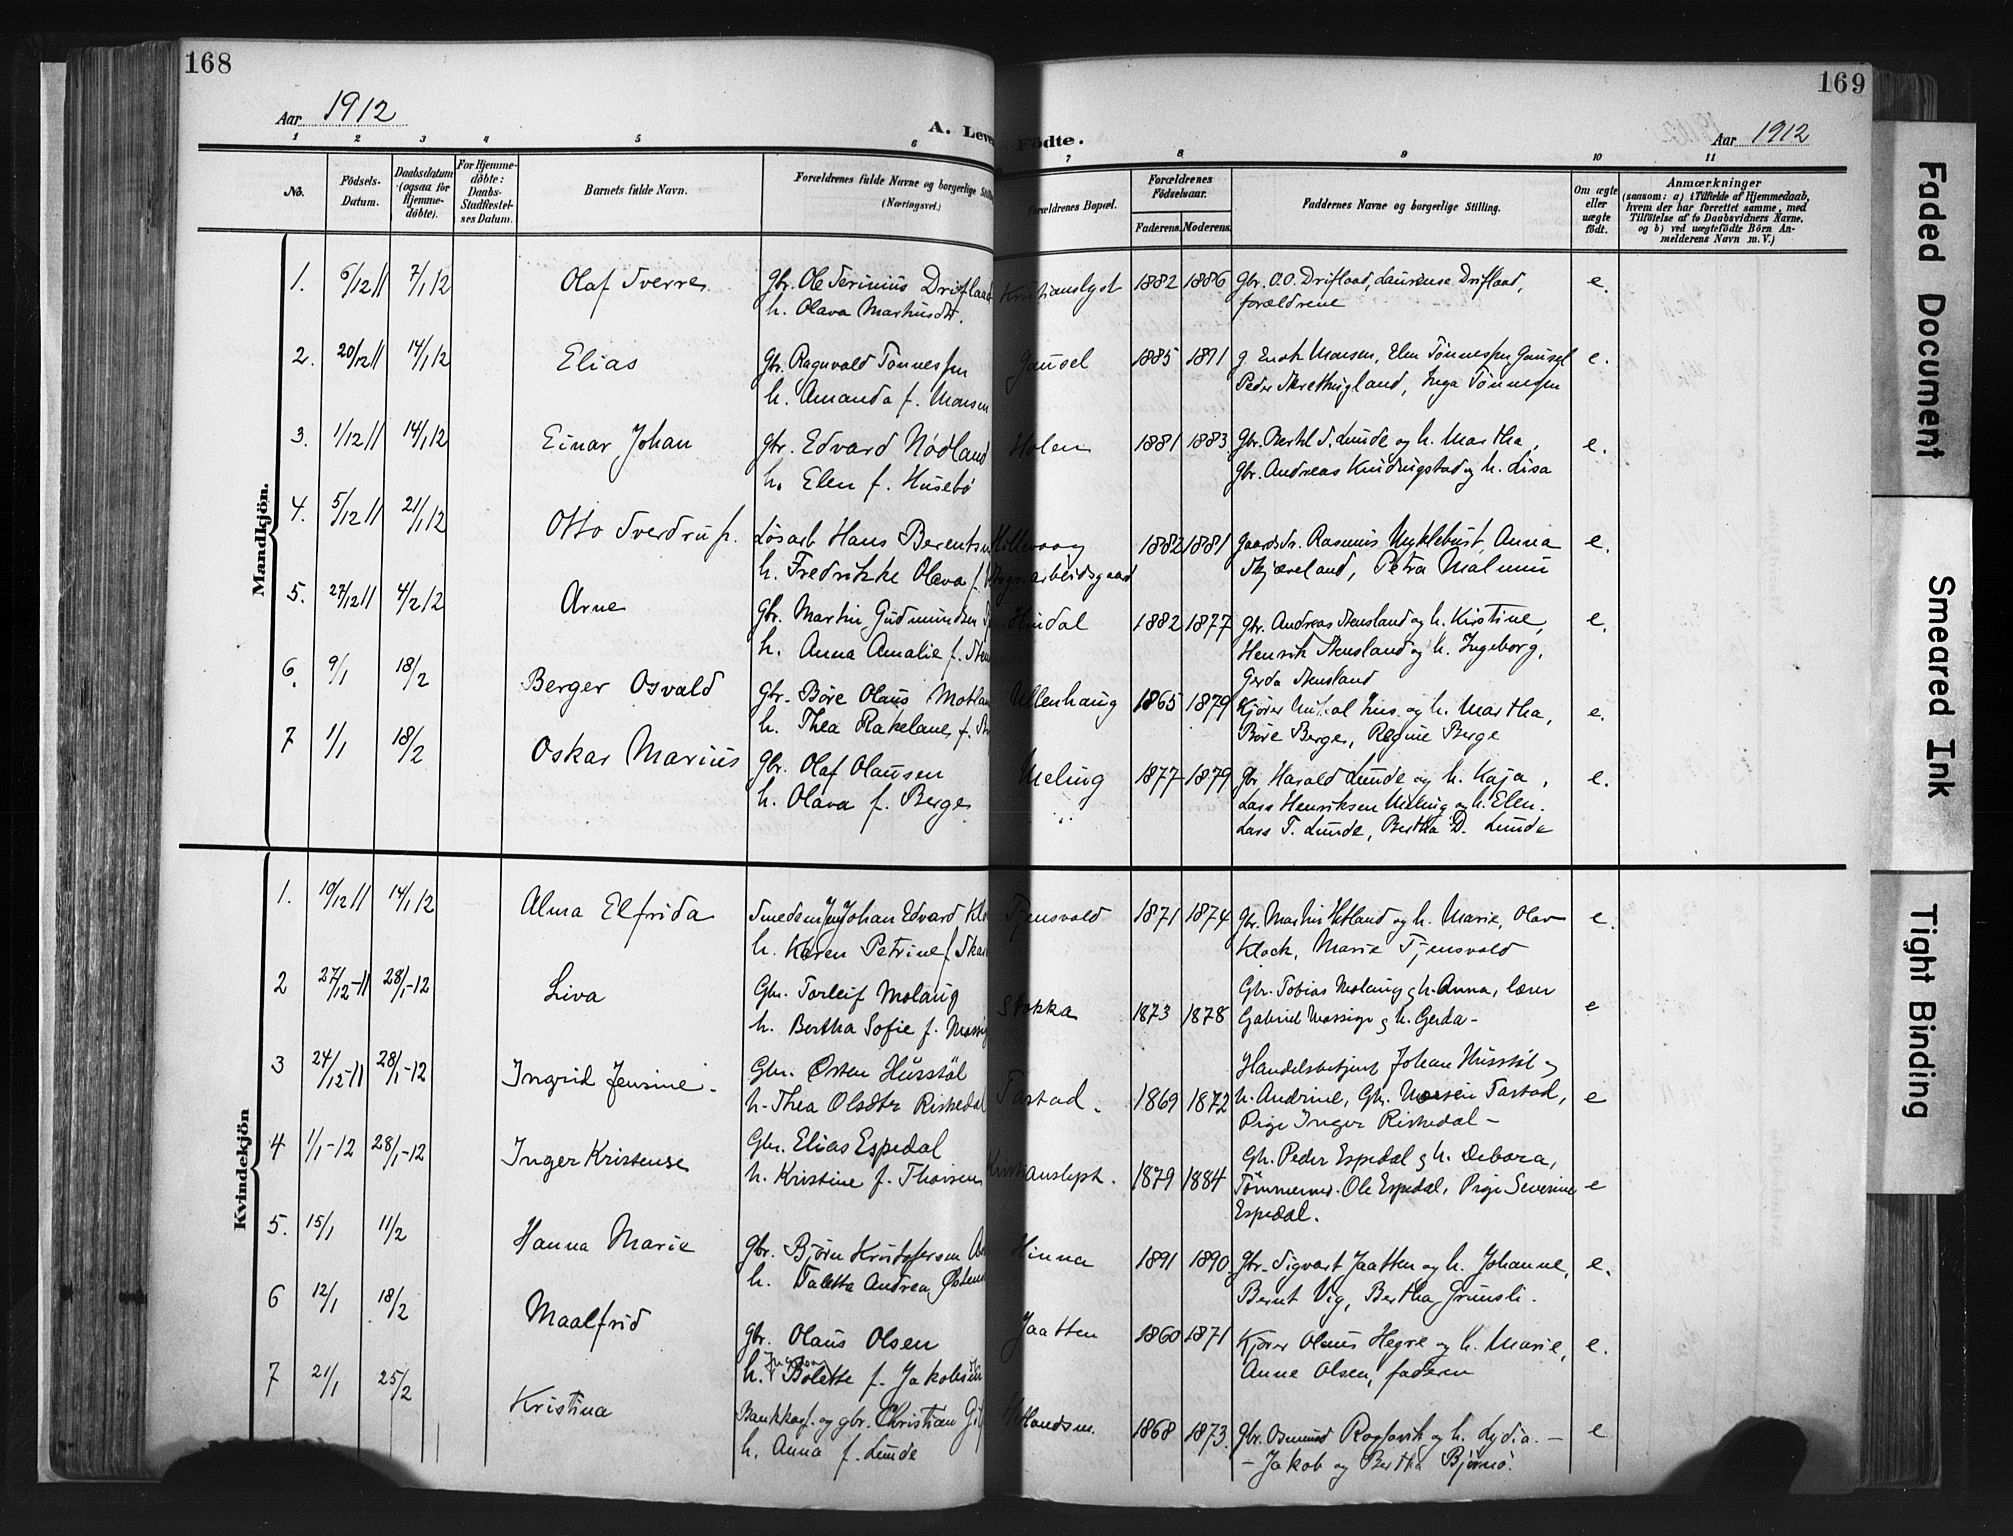 168
169
Aar 1912
A. Levende Födte.
Aar 1912
1 2 3 4 5 6 7 8 9 10 11
No.
Födsels-Datum.
Daabsdatum (ogsaa for Hjemme-döbte).
For Hjemme-döbte: Daabs-Stadfæstel-ses Datum.
Barnets fulde Navn.
Forældrenes fulde Navne og borgerlige Stilling (Næringsvei.)
Forældrenes Bopæl.
Forældrenes Födselsaar.
Faderens. Moderens.
Faddernes Navne og borgerlige Stilling.
Om ægte eller uægte födt.
Anmærkninger
(saasom: a) i Tilfælde af Hjemmedaab, hvem der har forrettet samme, med Tilföielse af to Daabsvidners Navne, og b) ved uægtefödte Börn An-melderens Navn m. V.)
Mandkjön.
1. 6/12 11 7/1 12 Olaf Sverre Gbr. Ole Serinius Driflaad Kristianslyst 1882 1886 Gbr. O.O. Driflaad, Laurense Driflaad, e.
h. Olava Marthisdtr. forældrene
2. 20/12 11 14/1 12 Elias Gbr. Ragnvald Tønnessen Gausel 1885 1891 g Enok Monsen, Elen Tønnessen Gausel e.
h. Amanda f. Monsen Peder Skrettingland, Inga Tönnessen
3. 1/12 11 14/1 12 Einar Johan Gbr. Edvard Nødland Holen 1881 1883 Gbr. Bertel S. Lunde og h. Martha, e.
h. Elen f. Husebö Gbr. Andreas Kindingstad og h. Lisa
4. 5/12 11 21/1 12 Otto Sverdrup. Løsarb Hans Berentsen Hillevaag 1882 1881 Gaardsbr. Rasmus Myklebust, Anna e.
h. Fredrikke Olava f. arbeidsgaard Skjæveland, Petra Malmin
5. 27/12 11 4/2 12 Arne Gbr. Martin Gudmundsen Hindal 1882 1877 Gbr. Andreas Stensland og h. Kirstine, e.
h. Anna Amalie f. Henrik Stensland og h. Ingeborg,
Gerda Stensland
6. 9/1 18/2 Berger Osvald Gbr. Böre Olaus Motland Ullenhaug 1865 1879 Kjörer og h. Martha, e.
h. Thea Rakelane f. Böre Berge, Regine Berge
7 1/1 18/2 Oskar Marius Gbr. Olaf Olausen Meling 1877 1879 Gbr Harald Lunde og h. Kaja, e.
h. Olava f. Berge " Lars Henriksen Meling og h. Elen.
Lars T. Lunde, Bertha D. Lunde
Kvindekjön
1. 10/12 11 14/1 12 Alma Elfrida Smedem Johan Edvard Tjensvold 1871 1874 Gbr. Martin Hetland og h. Marie, Olav e.
h. Karen Petrine f. Klock, Marie Tjensvold
2 27/12-11 28/1-12 Liva Gbr. Torleif Molaug Stokka 1873 1878 Gbr. Tobias Molaug & h. Anna, lærer e
h. Bertha Sofie f. Gabriel Mossige & h. Gerda-
3 24/12-11 28/1-12 Ingrid Jensine. Gbr. Østen Husstöl Tastad. 1869 1872 Handelsbetjent Johan Husstöl og e
h. Thea Olsdtr Riskedal h. Andrine, Gbr. Tastad,
Pige Inger Riskedal-
4 1/1-12 28/1-12 Inger Kristense Gbr. Elias Espedal Kristianslyst. 1879 1884 Gbr. Peder Espedal & h. Debora, e
h. Kristine f. Thorsen Tømmermd. Ole Espedal, Pige Severine
Espedal.
5. 15/1 11/2 Hanna Marie Gbr. Bjørn Kristoffersen Hinna 1891 1890 Gbr. Sigvart Jaatten og h. Johanne, e.
h. Taletta Andrea Bernt Vig, Bertha Grunsli.
6 12/1 18/2 Maalfrid Gbr. Olaus Olsen Jaatten 1860 1871 Kjörer Olaus Hegre og h. Marie, e.
h. Bolette f. Jakobsen Anne Olsen, faderen
7 21/1 25/2 Kristina Bankkas. og gbr. Christian Hetlandsm. 1868 1873. Gbr. Osmund og h. Lydia.- e
h. Anna f. Lunde - Jakob og Bertha Bjørnö.
Faded Document
Smeared Ink
Tight Binding